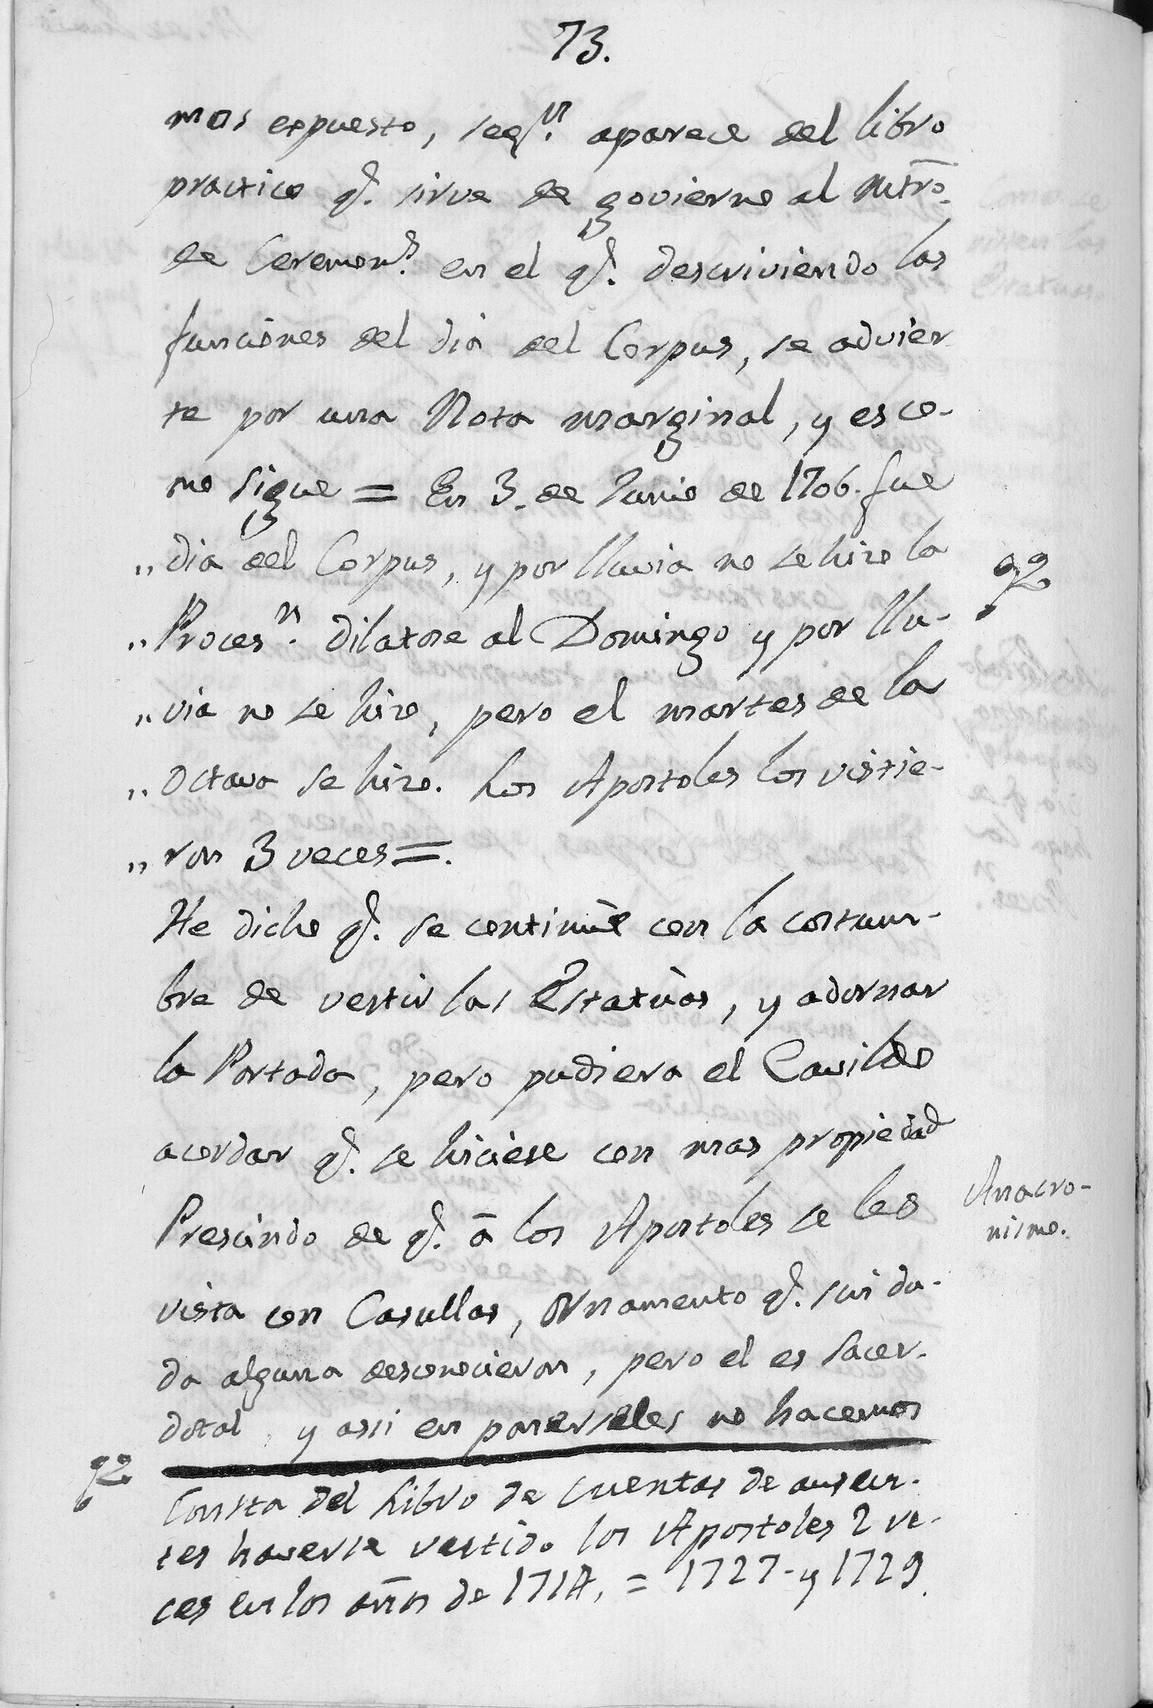 73.
mos expuesto, segn. aparece del libro
practico q. sirve de govierno al Mtro.
de Ceremons. en el q. descriviendo las
funciones del dia del Corpus, se advier
te por una Nota marginal, y es co-
mo sigue = En 3. de Junio de 1706. fue
„ dia del Corpus, y por lluvia no se hizo la
„ Procesn. dilatose al Domingo y por llu-
„ via no se hizo, pero el martes de la
„ octava se hizo. Los Apostoles los vistie-
„ ron 3 veces =.
He dicho q. se continùe con la costum-
bre de vestir las Estatùas, y adornar
la Portada, pero pudiera el Cavildo
acordar q. se hiciese con mas propiedad
Prescindo de q. â los Apostoles se les
Anacro-
nismo.
vista con Casullas, Ornamento q. sin du-
da alguna desconocieron, pero el es Sacer-
dotal, y assi en ponerseles no hacemos
Consta del Libro de Cuentas de ausen-
tes haverse vestido los Apostoles 2 ve-
ces en los años de 1714, = 1727- y 1729.